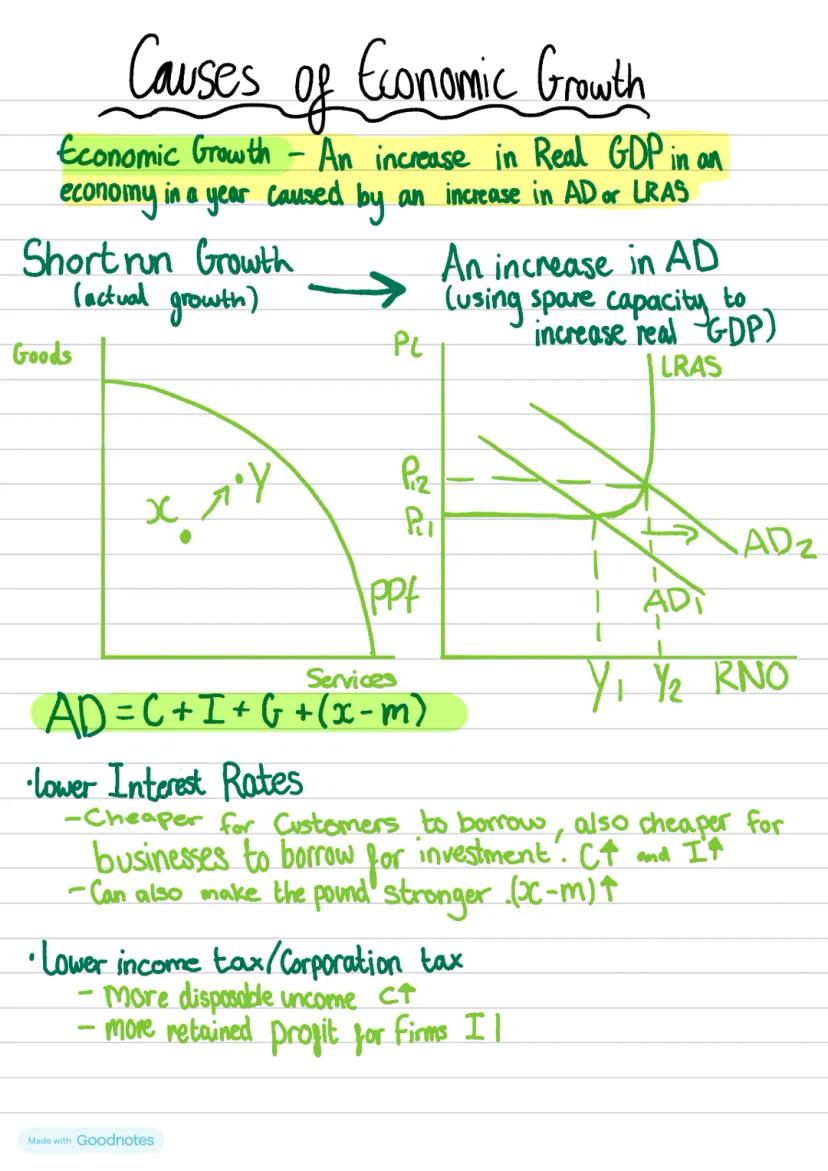 Causes of Economic Growth
Economic Growth - An increase in Real GDP in an
economy in a year caused by an increase in AD or LRAS
Short run Growth
(actual growth)
An increase in AD
(using spare capacity to
increase real GDP)
Goods
x
y
PPf
Services
PL
LRAS
PL2
PL1
AD2
AD1
Y1
Y2
RNO
AD = C + I + G + (x - m)
·lower Interest Rates
-Cheaper for Customers to borrow, also cheaper for
businesses to borrow for investment. C↑ and I↑
-Can also make the pound stronger .(x-m)↑
·Lower income tax/Corporation tax
- More disposable income C↑
- more retained profit for firms I |
Made with Goodnotes